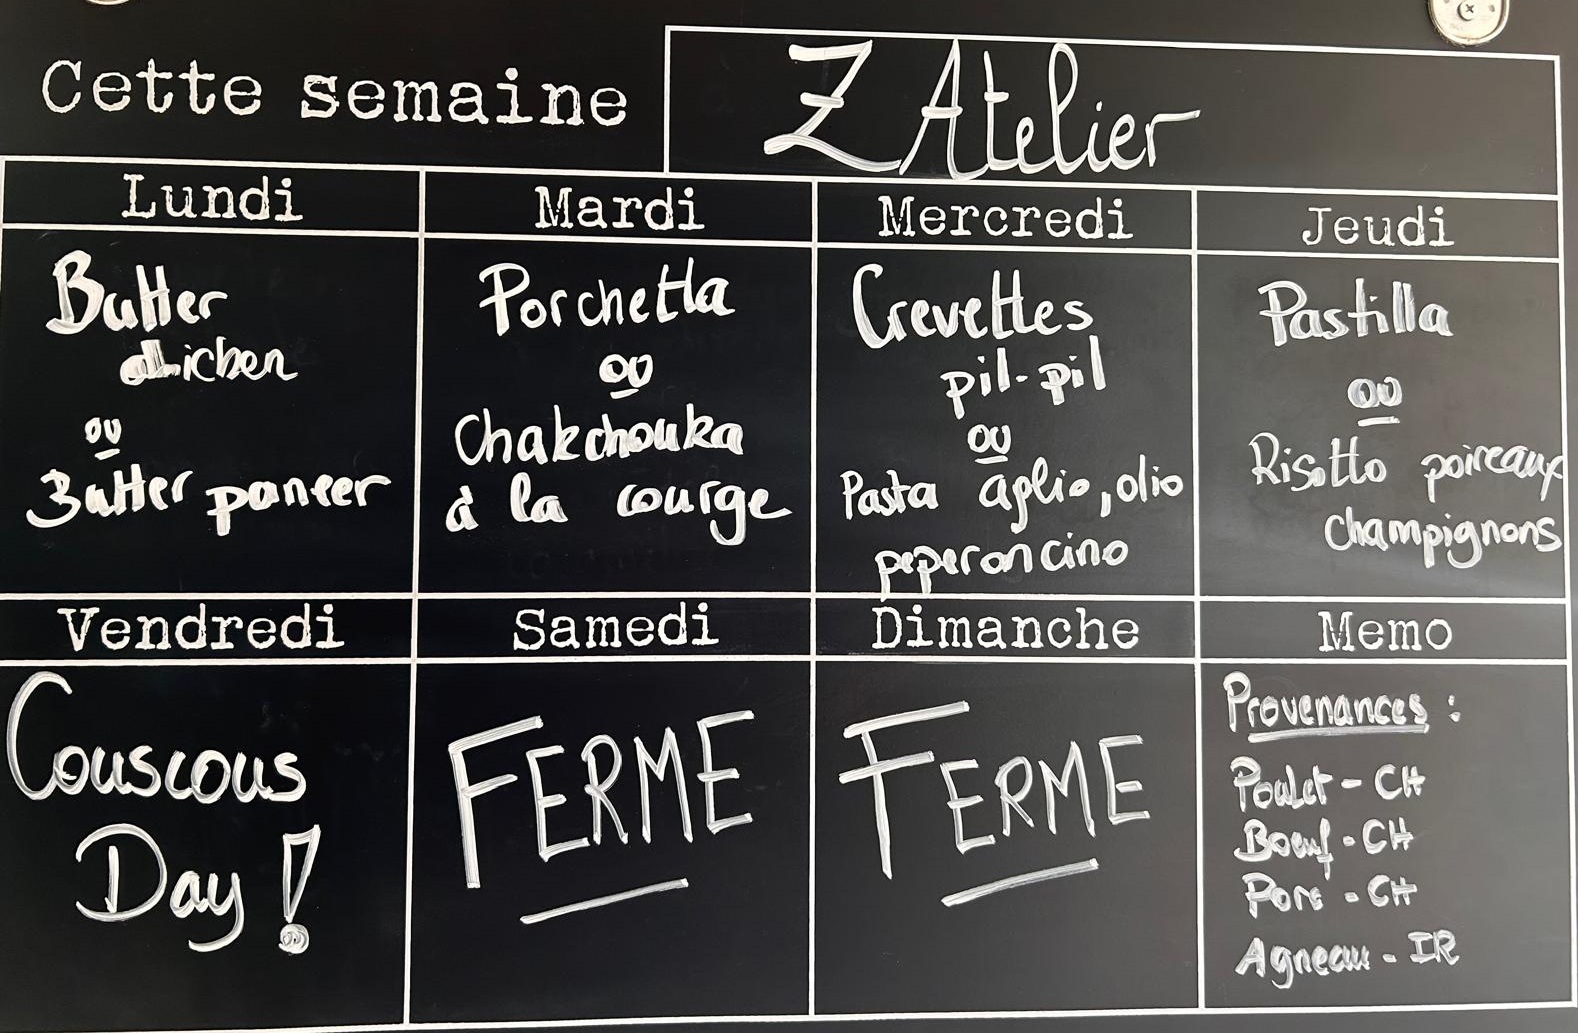 Cette semaine
ZAtelier
Lundi
Butter
chicken
ou
Butter paneer
Mardi
Porchetta
ou
Chakchouka
à la courge
Mercredi
Crevettes
pil-pil
ou
Pasta aglio, olio
peperoncino
Jeudi
Pastilla
ou
Risotto poireaux
champignons
Vendredi
Couscous
Day !
Samedi
FERME
Dimanche
FERME
Memo
Provenances :
Poulet - CH
Boeuf - CH
Porc - CH
Agneau - IR